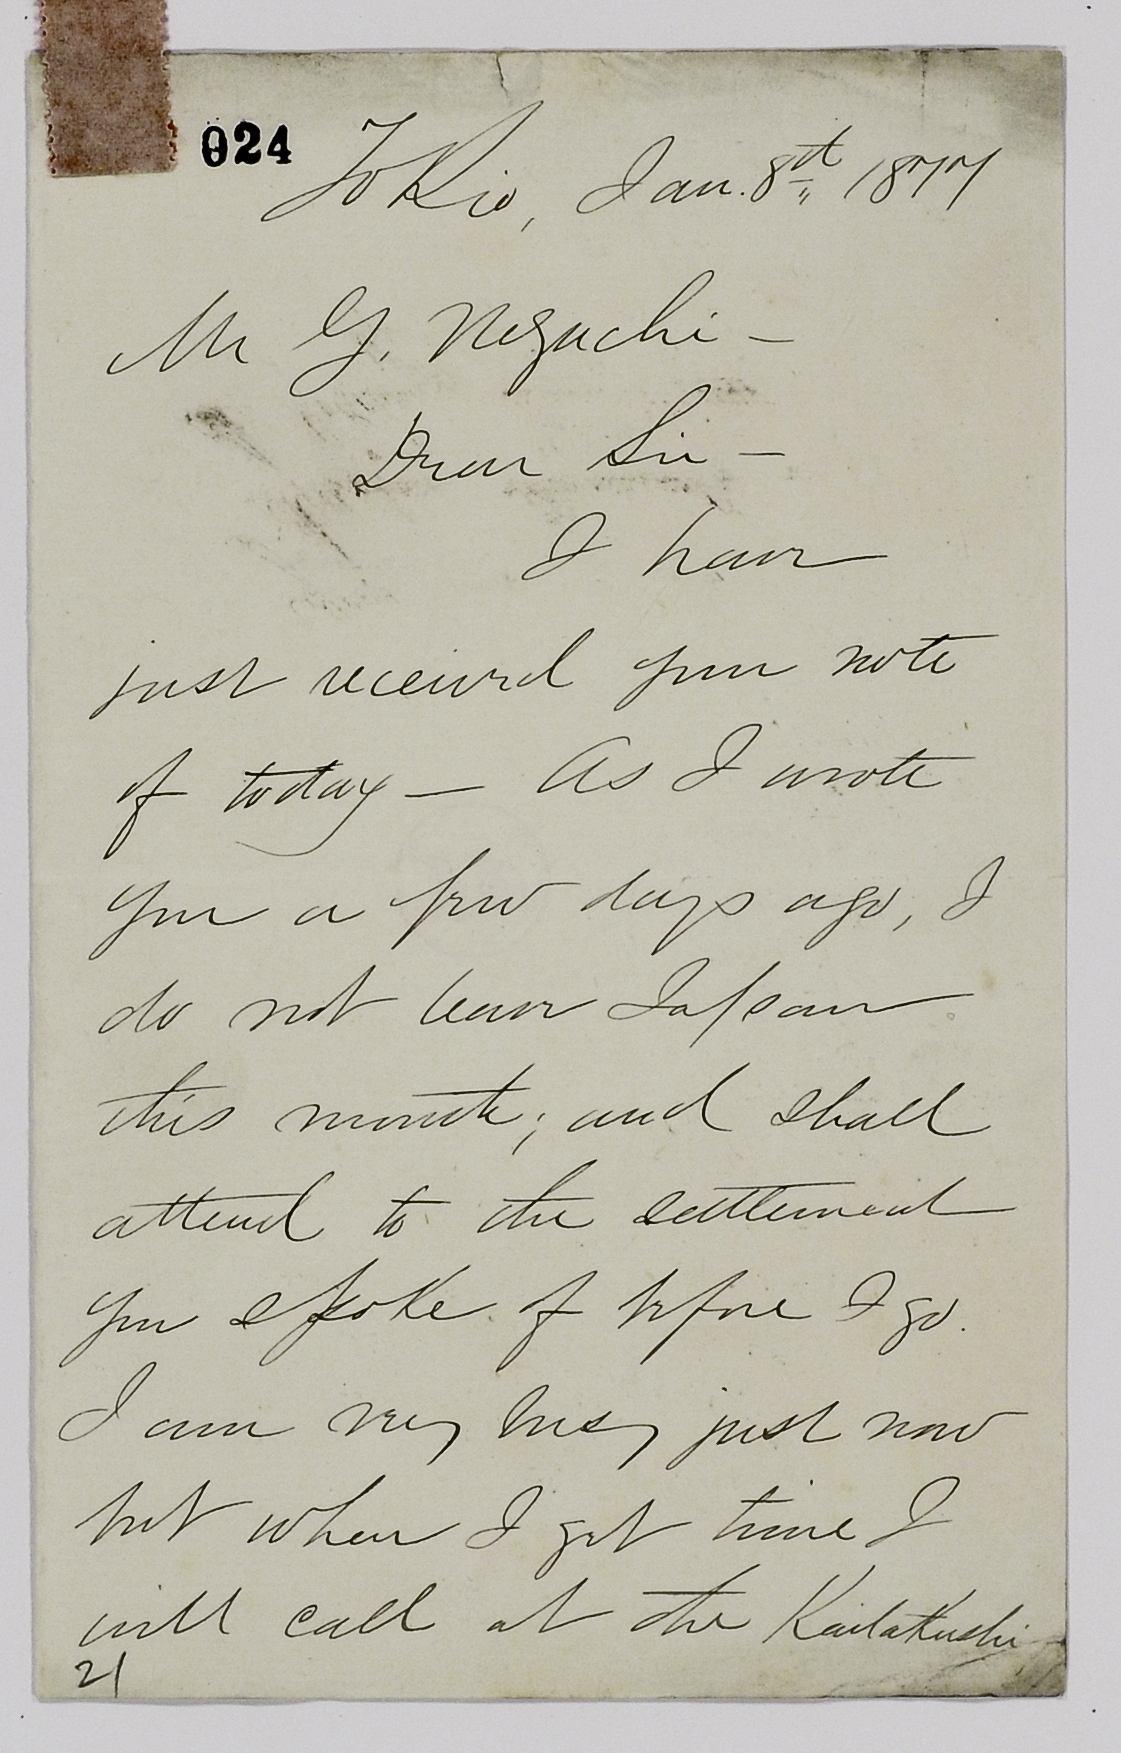 024
Tokio, Jan. 8th 1877
Mr G. Noguchi –
Dear Sir –
I have
just received your note
of today – As I wrote
you a few days ago, I
do not leave Japan
this month; and shall
attend to the settlement
you spoke of before I go.
I am very busy just now
but when I get time I
will call at the Kaitakushi
21